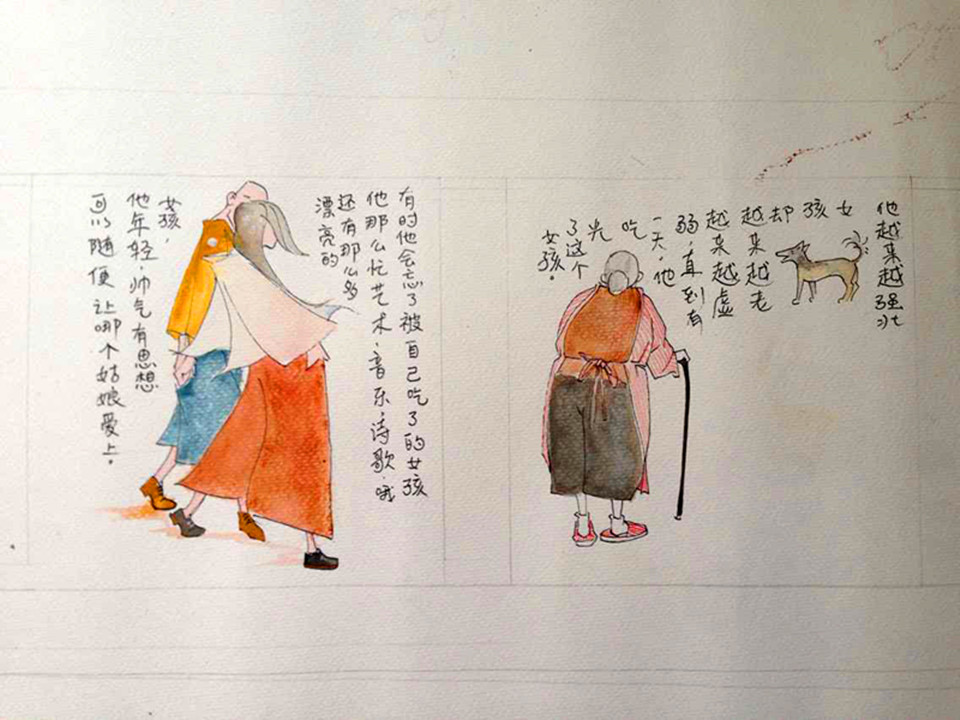 他越来越强壮
女孩却
越来越老
越来越虚
弱，直到有
一天，他
吃光
了这个
女孩。
有时他会忘了被自己吃了的女孩
他那么忙艺术、音乐、诗歌、哦
还有那么多
漂亮的
女孩，
他年轻，帅气有思想
可以随便让哪个姑娘爱上。